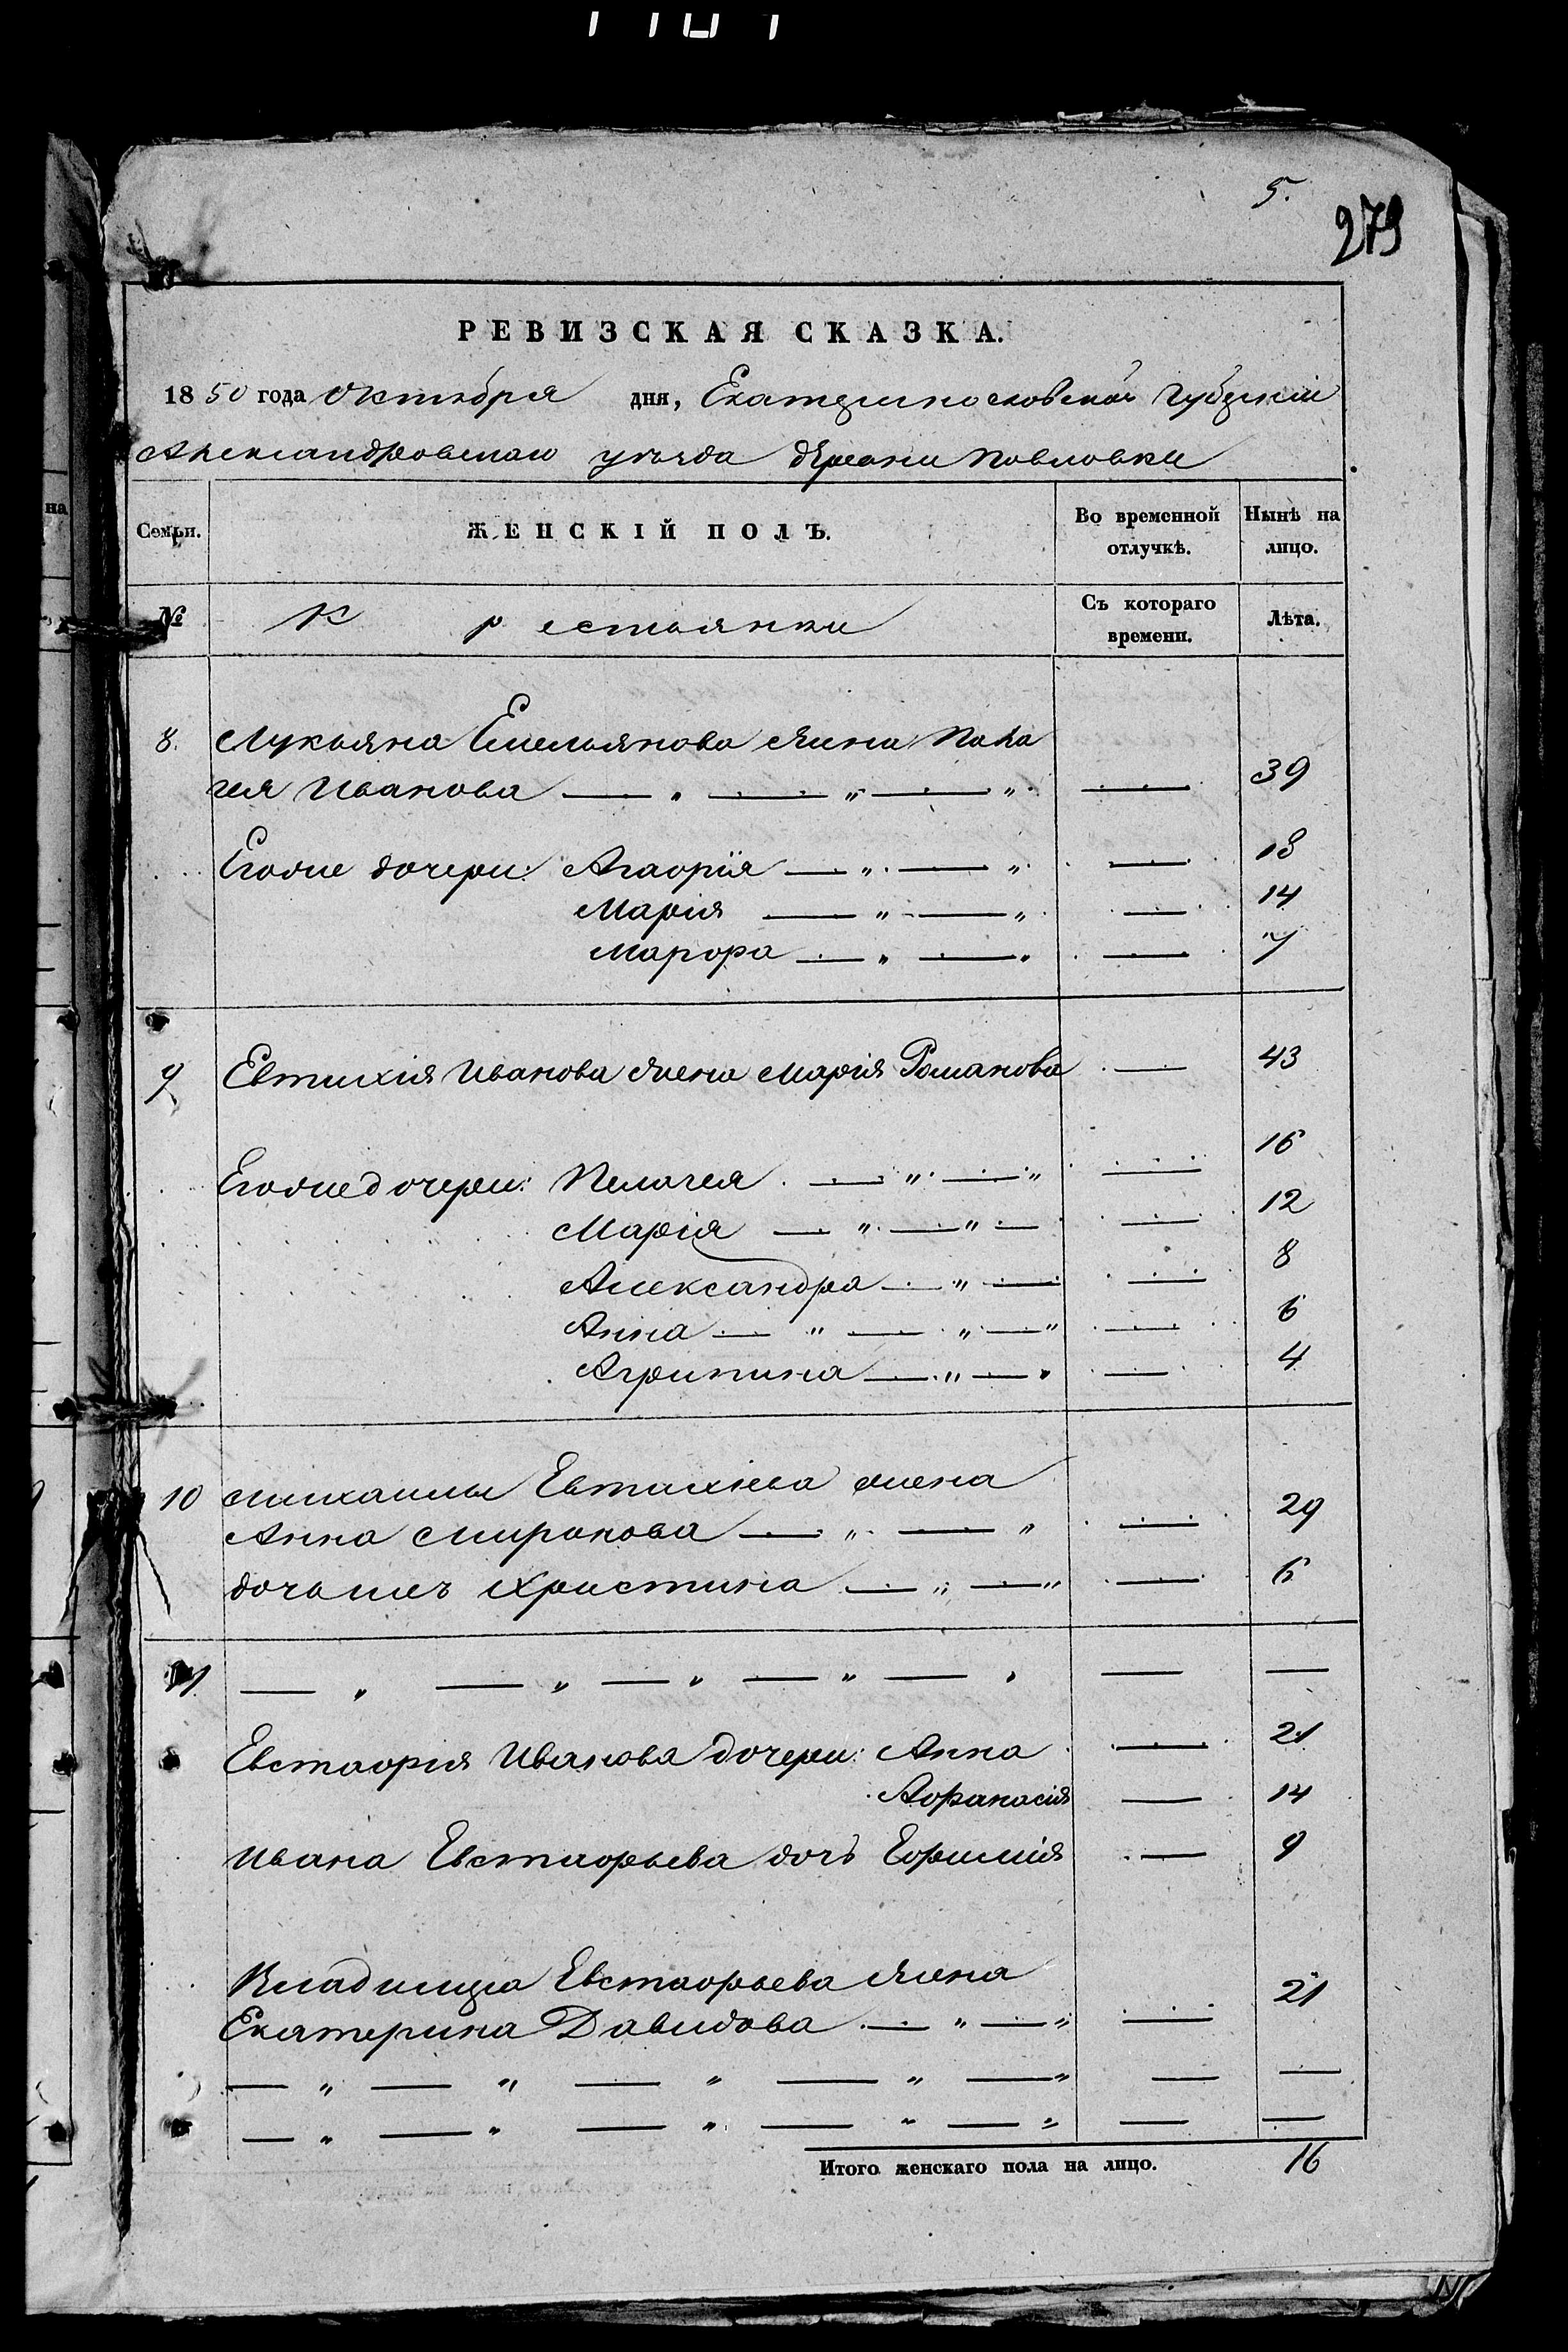 5.
279
РЕВИЗСКАЯ СКАЗКА.
1850 года Октября дня, Екатеринославской Губерніи
Александровскаго уѣзда деревни Павловки
Семьи. ЖЕНСКІЙ ПОЛЪ. Во временной отлучкѣ. Нынѣ на лицо.
№ Крестьянки Съ котораго времени. Лѣта.
8. Лукьяна Емельянова жена
Иванова — „ — „ — „ — 39
Егоже дочери: Агафія — „ — „ — 18
Марія — „ — „ — 14
Марфа — „ — „ — 7
9 Евтихія Иванова жена Марія Романова — 43
Егоже дочери: Пелагея — „ — „ — 16
Марія — „ — „ — — 12
Александра — „ — — 8
Анна — „ — „ — „ — 6
Агрипина — „ — „ — 4
10 Михаилы Евтихіева жена
Анна Миронова — „ — „ — 29
дочь ихъ Христина — „ — „ — 6
11 — „ — „ — „ — „ — „ — —
Евстафія Иванова дочери: Анна — 21
Афанасія — 14
Ивана Евстафьева дочь Ефимія — 9
Владимера Евстафьева жена
Екатерина Давидова — „ — „ — 21
— „ — „ — „ — „ — „ — —
— „ — „ — „ — „ — „ — —
Итого женскаго пола на лицо. 16